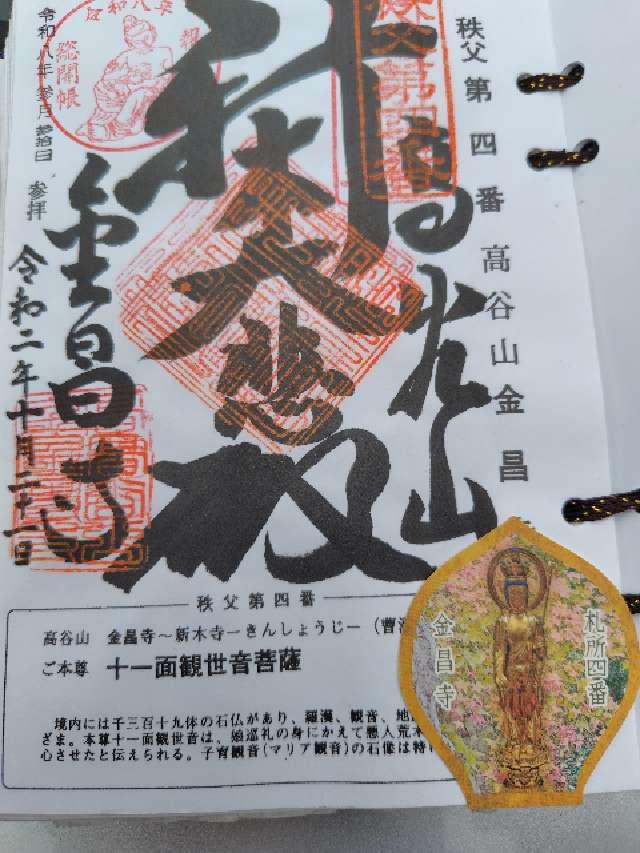 秩父第四番 高谷山金昌
秩父第四番
高谷山
大慈
殿
金昌寺
令和二年十月二十一日
令和八年参月参拾日 参拝
令和八年
総開帳
秩父第四番
高谷山 金昌寺～新木寺－きんしょうじ－（曹
ご本尊 十一面観世音菩薩
境内には千三百十九体の石仏があり、羅漢、観音、地
ざま。本尊十一面観世音は、娘巡礼の身にかえて悪人荒木
心させたと伝えられる。子育観音(マリア観音)の石像は特に
札所四番
金昌寺